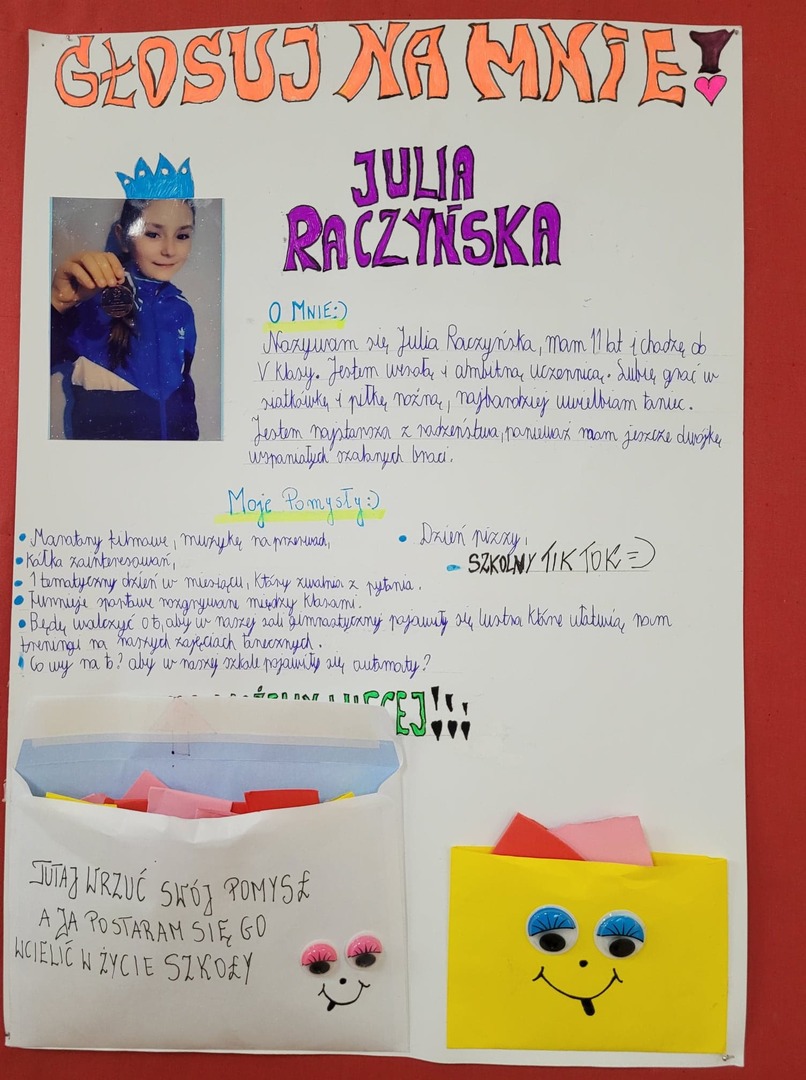 GŁOSUJ NA MNIE!
JULIA
RACZYŃSKA
O MNIE:)
Nazywam się Julia Raczyńska, mam 11 lat i chodzę do
V klasy. Jestem wesołą i ambitną uczennicą. Lubię grać w
siatkówkę i piłkę nożną, najbardziej uwielbiam taniec.
Jestem najstarsza z rodzeństwa, ponieważ mam jeszcze dwójkę
wspaniałych szalonych braci.
Moje Pomysły:)
• Maratony filmowe, muzykę na przerwach,
• Kółka zainteresowań,
• 1 tematyczny dzień w miesiącu, który zwalnia z pytania.
• Turnieje sportowe rozgrywane między klasami.
• Będę walczyć o to, aby w naszej sali gimnastycznej pojawiły się lustra które ułatwią nam
treningi na naszych zajęciach tanecznych.
• Co wy na to? aby w naszej szkole pojawiły się automaty?
• Dzień pizzy,
- SZKOLNY TIK TOK =)
WIĘCEJ!!!
TUTAJ WRZUĆ SWÓJ POMYSŁ
A JA POSTARAM SIĘ GO
WCIELIĆ W ŻYCIE SZKOŁY